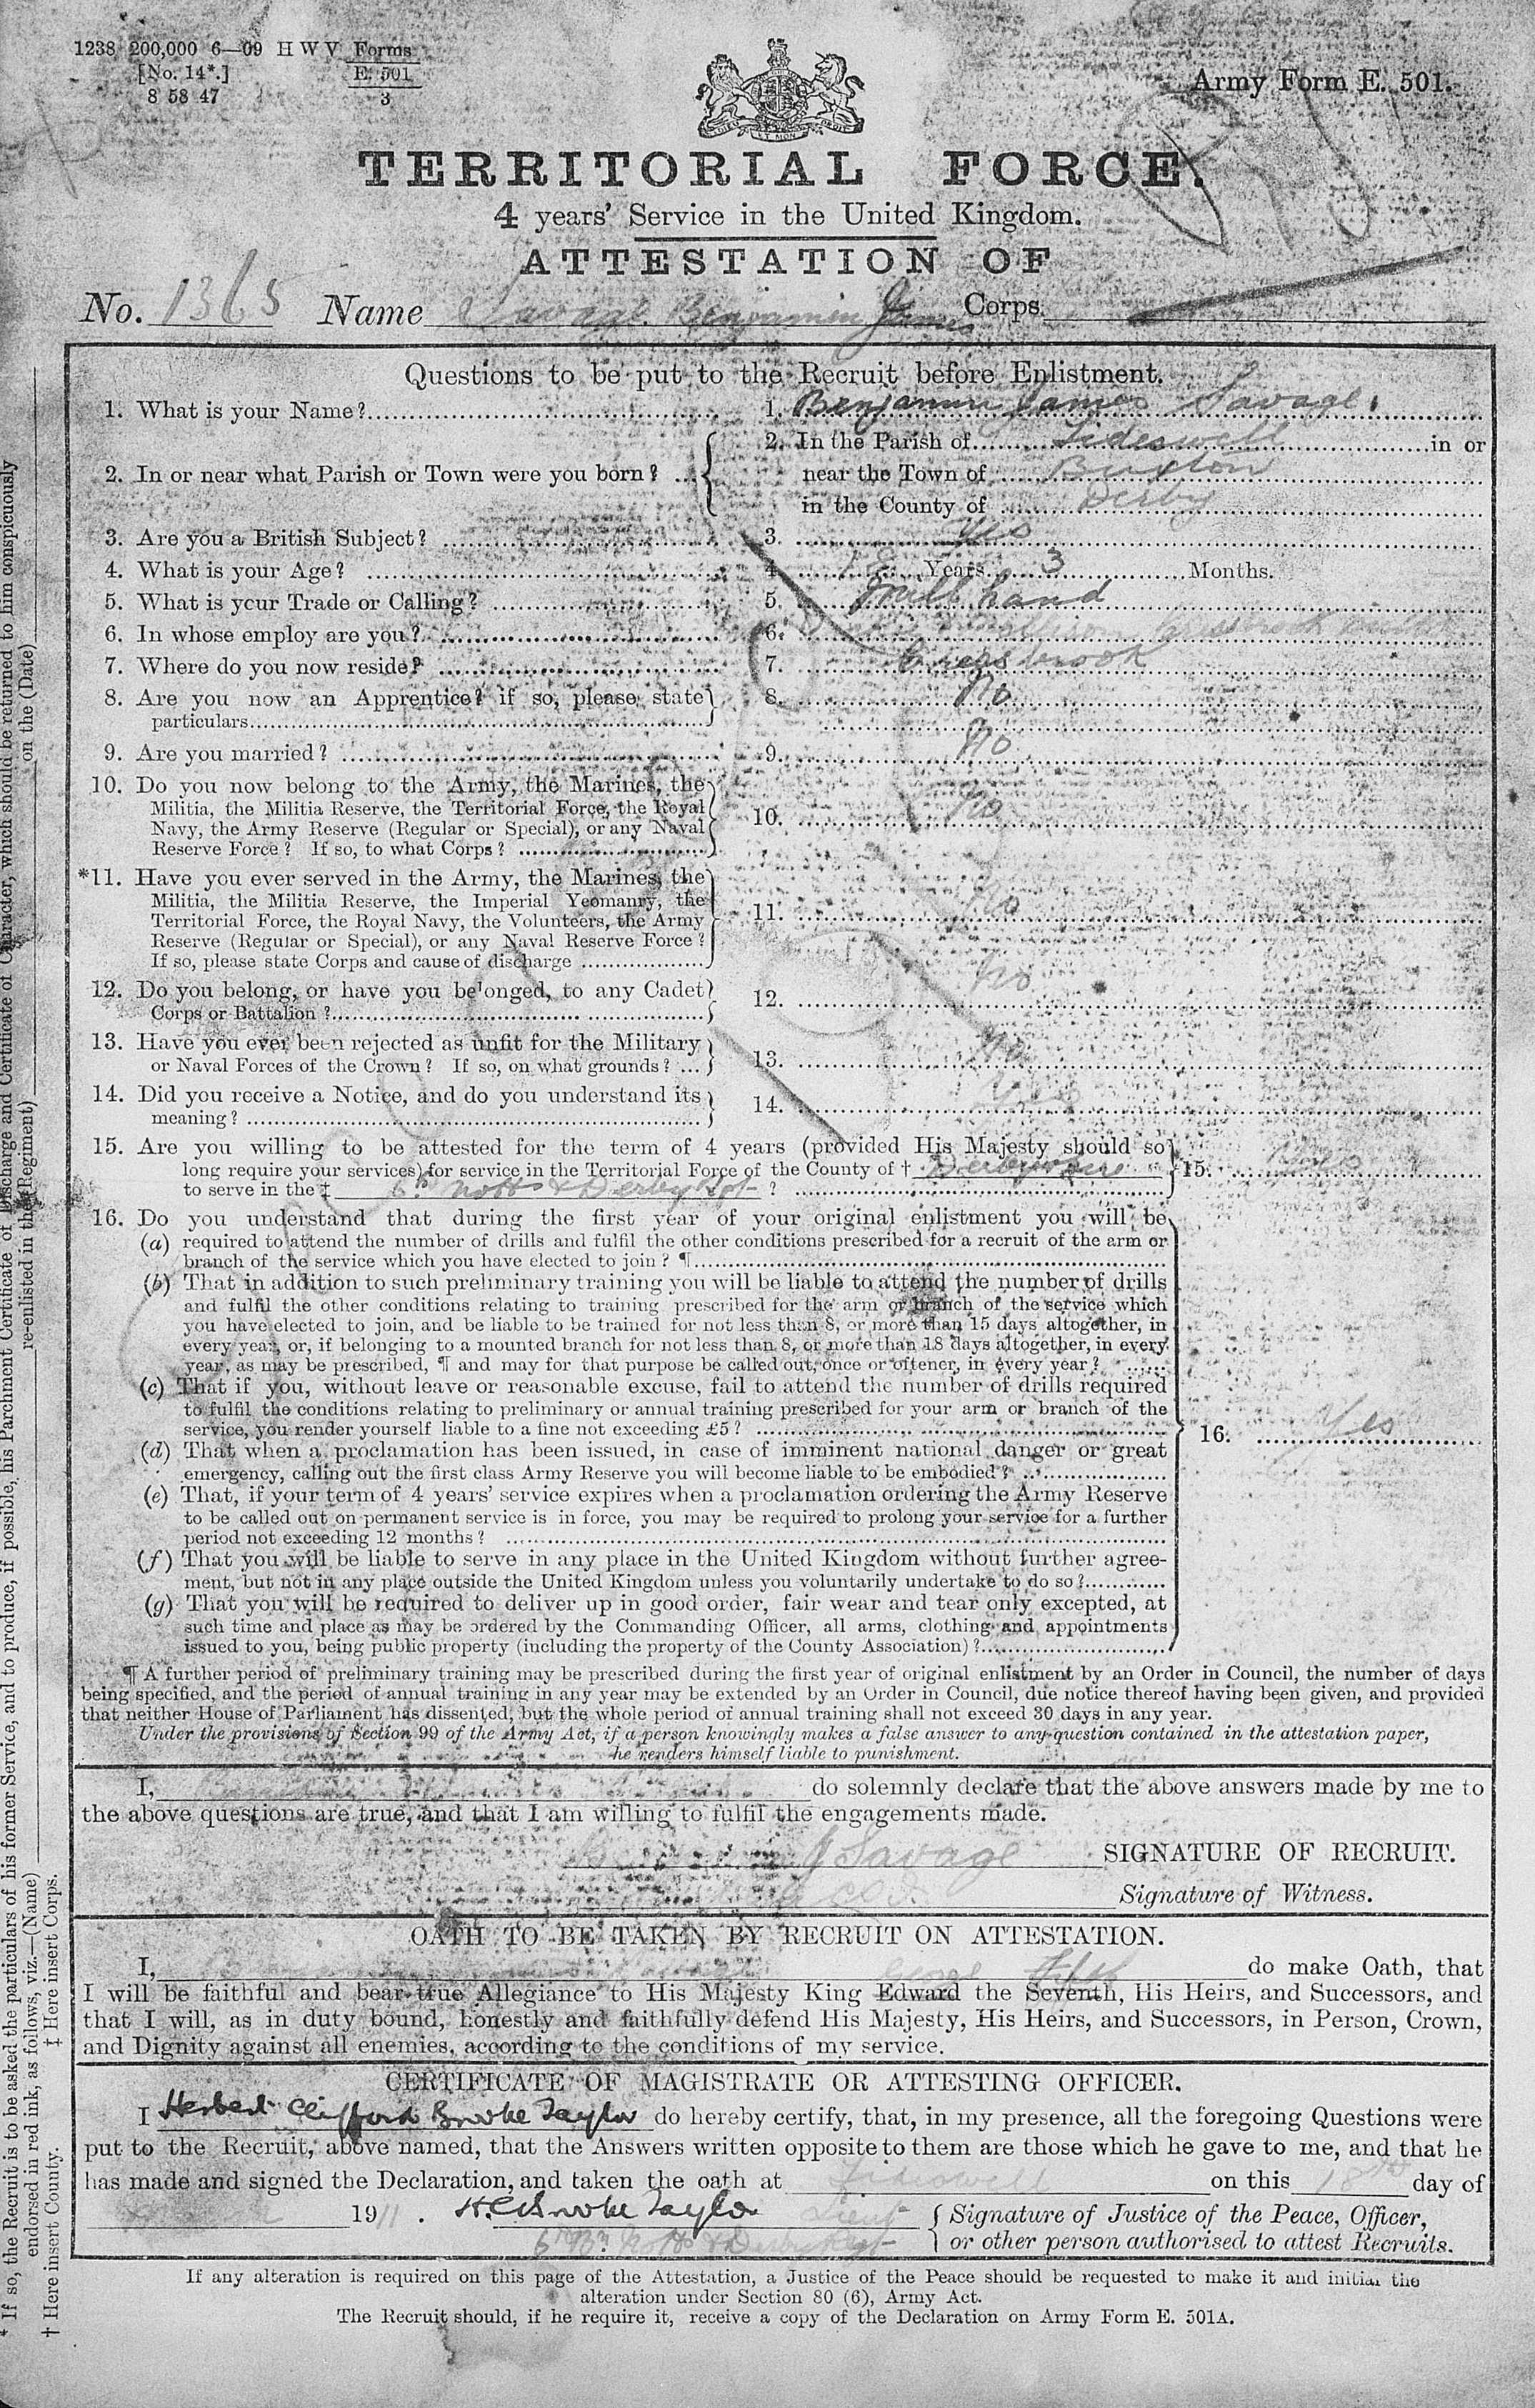 1238 200,000 6—09 H W V Forms
[No. 14*.] E. 501
8 58 47 3
Army Form E. 501.
TERRITORIAL FORCE.
4 years' Service in the United Kingdom.
ATTESTATION OF
No. 1365 Name Savage Benjamin James Corps
Questions to be put to the Recruit before Enlistment.
1. What is your Name? 1. Benjamin James Savage.
2. In the Parish of Tideswell in or
2. In or near what Parish or Town were you born? near the Town of Buxton
in the County of Derby
3. Are you a British Subject? 3. Yes
4. What is your Age? 4. Years 3 Months.
5. What is your Trade or Calling? 5. Mill hand
6. In whose employ are you? 6.
7. Where do you now reside? 7. Cressbrook
8. Are you now an Apprentice? if so, please state 8. No
particulars
9. Are you married? 9. No
10. Do you now belong to the Army, the Marines, the
Militia, the Militia Reserve, the Territorial Force, the Royal
Navy, the Army Reserve (Regular or Special), or any Naval 10. No
Reserve Force? If so, to what Corps?
*11. Have you ever served in the Army, the Marines, the
Militia, the Militia Reserve, the Imperial Yeomanry, the
Territorial Force, the Royal Navy, the Volunteers, the Army 11. No
Reserve (Regular or Special), or any Naval Reserve Force?
If so, please state Corps and cause of discharge
12. Do you belong, or have you belonged, to any Cadet 12. No
Corps or Battalion?
13. Have you ever been rejected as unfit for the Military 13. No
or Naval Forces of the Crown? If so, on what grounds? ...
14. Did you receive a Notice, and do you understand its 14. Yes
meaning?
15. Are you willing to be attested for the term of 4 years (provided His Majesty should so
long require your services) for service in the Territorial Force of the County of † Derbyshire 15. Yes
to serve in the ‡ 6th Notts & Derby Rgt ?
16. Do you understand that during the first year of your original enlistment you will be
(a) required to attend the number of drills and fulfil the other conditions prescribed for a recruit of the arm or
branch of the service which you have elected to join? ¶
(b) That in addition to such preliminary training you will be liable to attend the number of drills
and fulfil the other conditions relating to training prescribed for the arm or branch of the service which
you have elected to join, and be liable to be trained for not less than 8, or more than 15 days altogether, in
every year, or, if belonging to a mounted branch for not less than 8, or more than 18 days altogether, in every
year, as may be prescribed, ¶ and may for that purpose be called out, once or oftener, in every year?
(c) That if you, without leave or reasonable excuse, fail to attend the number of drills required
to fulfil the conditions relating to preliminary or annual training prescribed for your arm or branch of the
service, you render yourself liable to a fine not exceeding £5? 16. Yes
(d) That when a proclamation has been issued, in case of imminent national danger or great
emergency, calling out the first class Army Reserve you will become liable to be embodied?
(e) That, if your term of 4 years' service expires when a proclamation ordering the Army Reserve
to be called out on permanent service is in force, you may be required to prolong your service for a further
period not exceeding 12 months?
(f) That you will be liable to serve in any place in the United Kingdom without further agree-
ment, but not in any place outside the United Kingdom unless you voluntarily undertake to do so?
(g) That you will be required to deliver up in good order, fair wear and tear only excepted, at
such time and place as may be ordered by the Commanding Officer, all arms, clothing and appointments
issued to you, being public property (including the property of the County Association)?
¶ A further period of preliminary training may be prescribed during the first year of original enlistment by an Order in Council, the number of days
being specified, and the period of annual training in any year may be extended by an Order in Council, due notice thereof having been given, and provided
that neither House of Parliament has dissented, but the whole period of annual training shall not exceed 30 days in any year.
Under the provisions of Section 99 of the Army Act, if a person knowingly makes a false answer to any question contained in the attestation paper,
he renders himself liable to punishment.
I, do solemnly declare that the above answers made by me to
the above questions are true, and that I am willing to fulfil the engagements made.
J Savage SIGNATURE OF RECRUIT.
Signature of Witness.
OATH TO BE TAKEN BY RECRUIT ON ATTESTATION.
I, George Fifth do make Oath, that
I will be faithful and bear true Allegiance to His Majesty King Edward the Seventh, His Heirs, and Successors, and
that I will, as in duty bound, honestly and faithfully defend His Majesty, His Heirs, and Successors, in Person, Crown,
and Dignity against all enemies, according to the conditions of my service.
CERTIFICATE OF MAGISTRATE OR ATTESTING OFFICER.
I Herbert Clifford Brooke Taylor do hereby certify, that, in my presence, all the foregoing Questions were
put to the Recruit, above named, that the Answers written opposite to them are those which he gave to me, and that he
has made and signed the Declaration, and taken the oath at Tideswell on this 18th day of
1911. H.C. Brooke Taylor Lieut Signature of Justice of the Peace, Officer,
6th Bn Notts & Derby Regt or other person authorised to attest Recruits.
If any alteration is required on this page of the Attestation, a Justice of the Peace should be requested to make it and initial the
alteration under Section 80 (6), Army Act.
The Recruit should, if he require it, receive a copy of the Declaration on Army Form E. 501A.
* If so, the Recruit is to be asked the particulars of his former Service, and to produce, if possible, his Parchment Certificate of Discharge and Certificate of Character, which should be returned to him conspicuously
endorsed in red ink, as follows, viz.—(Name) re-enlisted in the (Regiment) on the (Date)
† Here insert County. ‡ Here insert Corps.